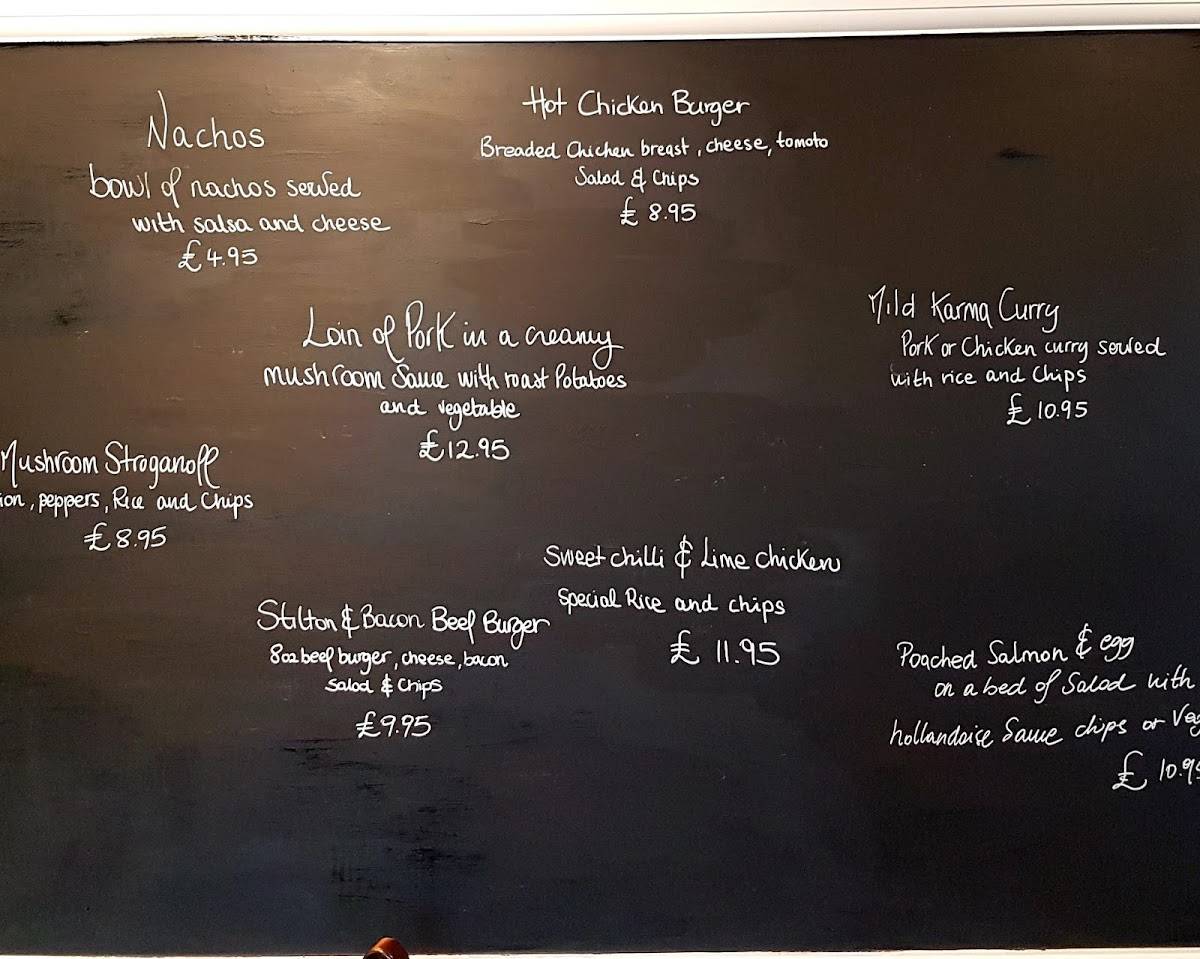 Nachos
bowl of nachos served
with salsa and cheese
£4.95
Hot Chicken Burger
Breaded Chicken breast, cheese, tomato
Salad & Chips
£ 8.95
Loin of Pork in a creamy
mushroom Sauce with roast Potatoes
and vegetable
£12.95
Mild Karma Curry
Pork or Chicken curry served
with rice and Chips
£ 10.95
Mushroom Stroganoff
, peppers, Rice and Chips
£8.95
Sweet chilli & Lime chicken
Special Rice and chips
£ 11.95
Stilton & Bacon Beef Burger
8oz beef burger, cheese, bacon
Salad & Chips
£9.95
Poached Salmon & egg
on a bed of Salad with
hollandaise Sauce chips or Veg
£ 10.95